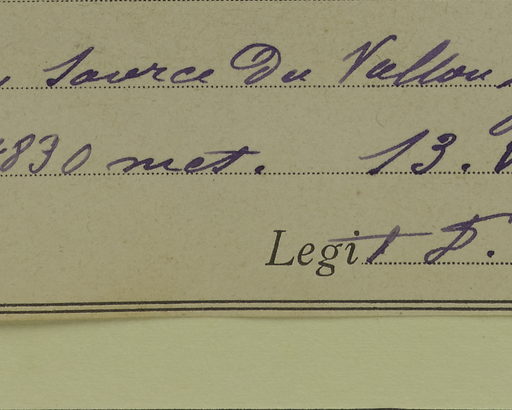 Source Du Vallon
1830 met. 13.
Legit D.